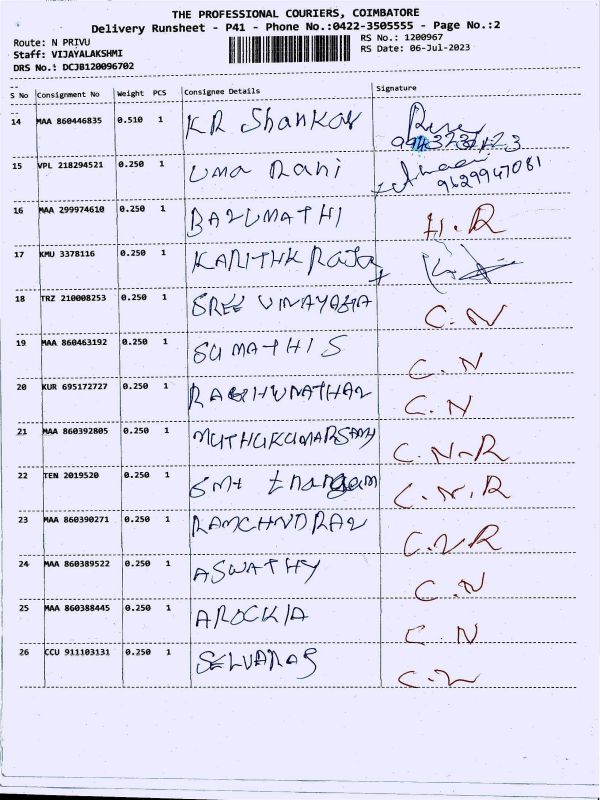 THE PROFESSIONAL COURIERS, COIMBATORE
Delivery Runsheet - P41 - Phone No.:0422-3505555 - Page No.:2
Route: N PRIVU
RS No.: 1200967
Staff: VIJAYALAKSHMI
RS Date: 06-Jul-2023
DRS No.: DCJB120096702
S No Consignment No Weight PCS Consignee Details Signature
14 MAA 860446835 0.510 1 KR Shankar
15 VPL 218294521 0.250 1 UMA RANI 9629947081
16 MAA 299974610 0.250 1 BANUMATHI H.R
17 KMU 3378116 0.250 1 KARITHK Raja
18 TRZ 210008253 0.250 1 SREE VINAYAGA C.N
19 MAA 860463192 0.250 1 SUMATHI S C.N
20 KUR 695172727 0.250 1 RAGHUNATHAN C.N
21 MAA 860392805 0.250 1 MUTHUKUMARSAMY C.N-R
22 TEN 2019520 0.250 1 SMT C.N.R
23 MAA 860390271 0.250 1 RAMCHNDRAN C.N R
24 MAA 860389522 0.250 1 ASWATHY C.N
25 MAA 860388445 0.250 1 AROCKIA C.N
26 CCU 911103131 0.250 1 SELVARAS C.N